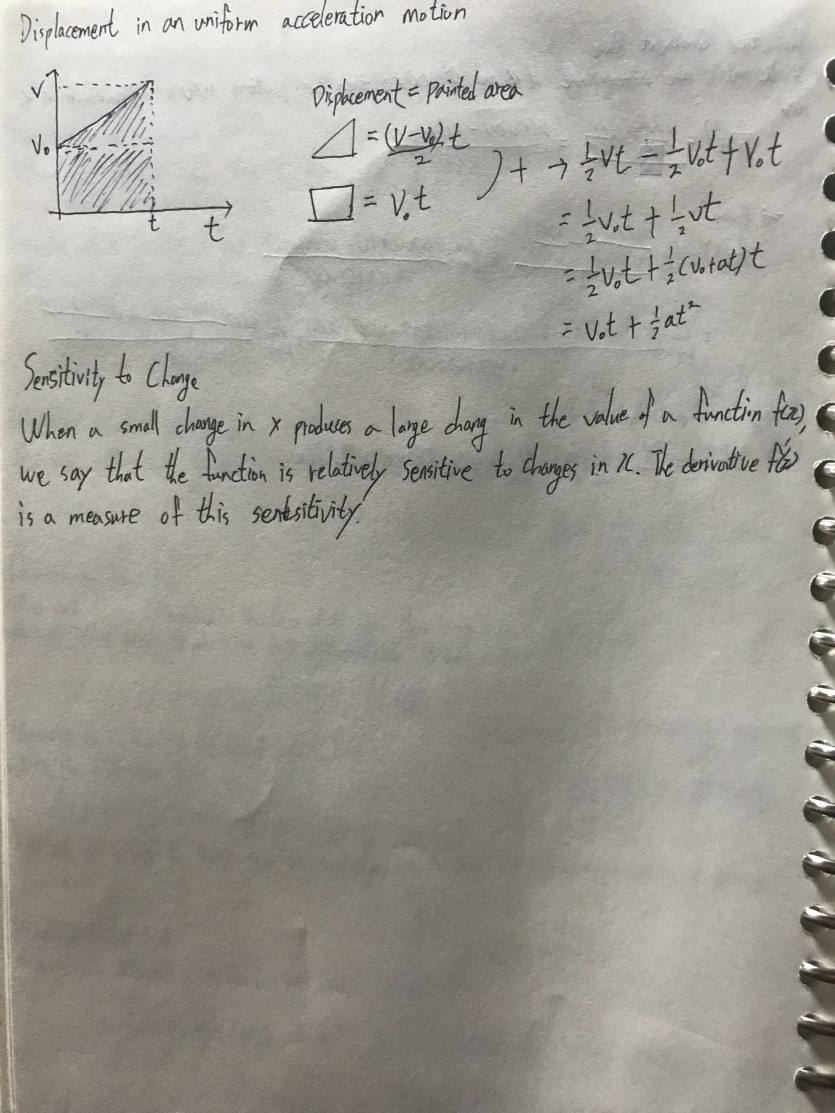 Displacement in an uniform acceleration motion
V
V₀
t
t
Displacement = Painted area
= (V-V₀)/2 t
= V₀t
) + → ½vt - ½v₀t + V₀t
= ½v₀t + ½vt
= ½v₀t + ½(v₀+at)t
= v₀t + ½at²
Sensitivity to Change
When a small change in x produces a large chang in the value of a function f(x),
we say that the function is relatively sensitive to changes in x. The derivative f'(x)
is a measure of this sentsitivity.